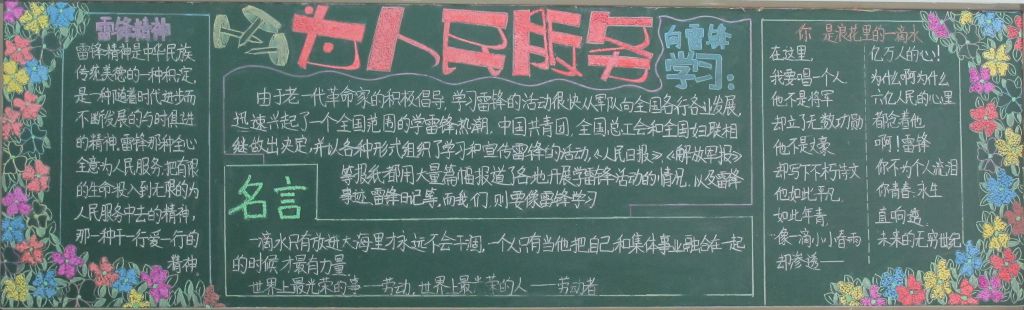 雷锋精神
雷锋精神是中华民族
传统美德的一种积淀,
是一种随着时代进步而
不断发展的与时俱进
的精神,雷锋那种全心
全意为人民服务,把有限
的生命投入到无限的为
人民服务中去的精神,
那一种干一行爱一行的
精神
为人民服务
向雷锋
学习:
由于老一代革命家的积极倡导,学习雷锋的活动很快从军队向全国各行各业发展,
迅速兴起了一个全国范围的学雷锋热潮,中国共青团,全国总工会和全国妇联相
继做出决定,并以各种形式组织了学习和宣传雷锋的活动,《人民日报》《解放军报》
等报纸都用大量篇幅报道了各地开展学雷锋活动的情况,以及雷锋
事迹,雷锋日记等,而我们,则要像雷锋学习
名言
一滴水只有放进大海里才永远不会干涸,一个人只有当他把自己和集体事业融合在一起
的时候才最有力量
世界上最光荣的事——劳动,世界上最光荣的人——劳动者
你 是浪花里的一滴水
在这里,
我要唱一个人
他不是将军
却立了无数功勋
他不是文豪
却写下不朽诗文
他如此平凡
如此年青
像一滴小小春雨
却渗透——
亿万人的心!
为什么啊为什么
六亿人民的心里
都念着他
啊!雷锋
你不为个人流泪
你青春,永生
直响透,
未来的无穷世纪